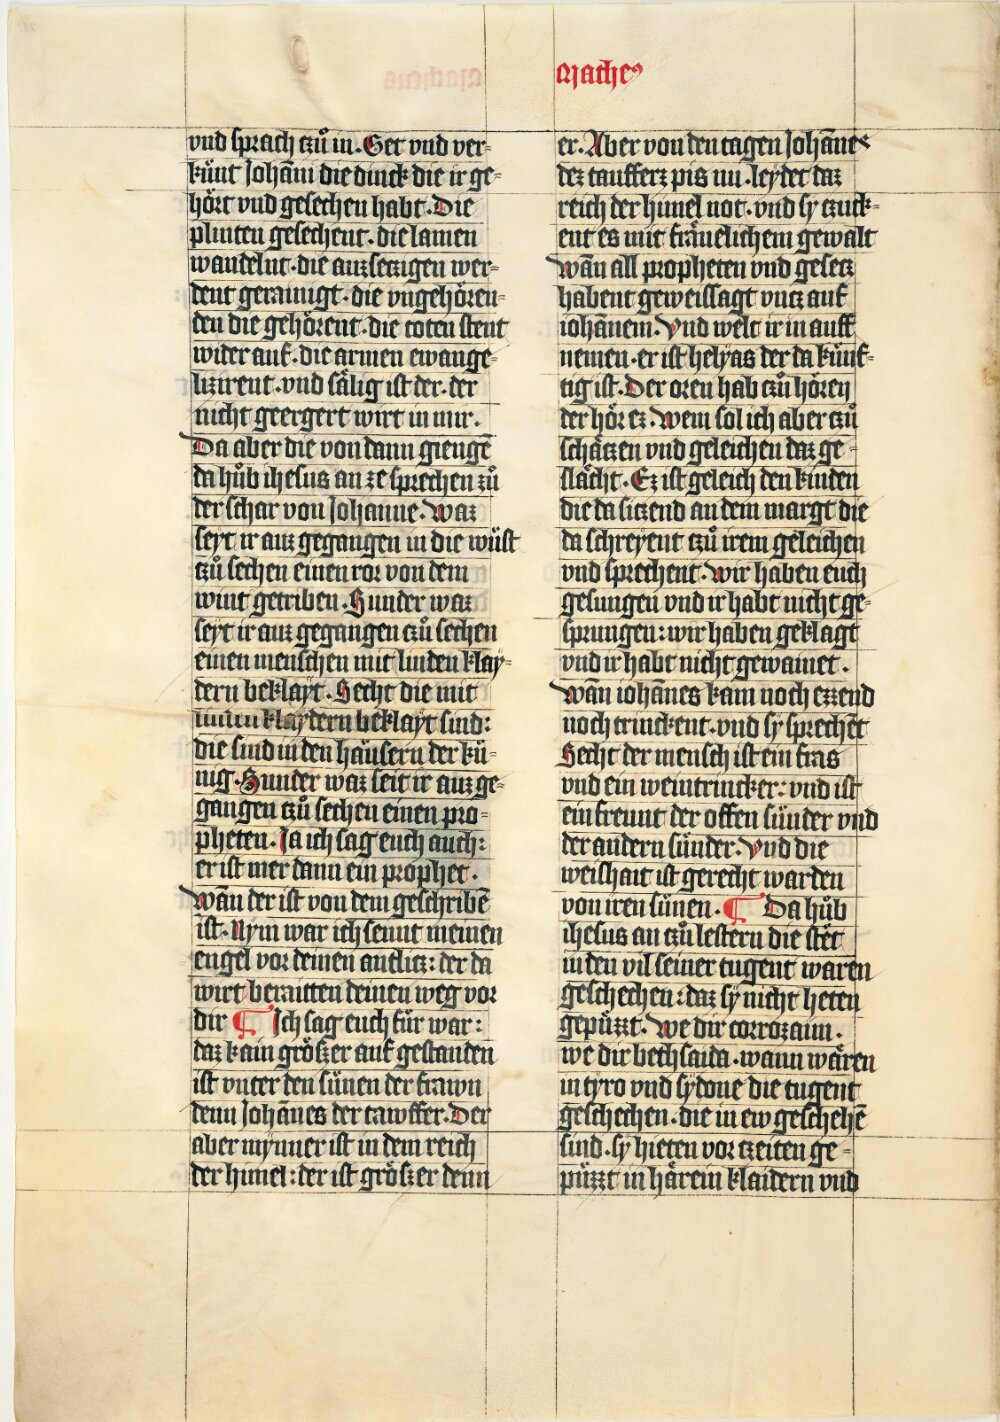 Mathe⁹
vnd sprach tzů in. Get vnd ver-
künt Johāni die dinck die ir ge-
hört vnd gesechen habt. Die
plinten gesechent. die lamen
wandelnt. die auzsetzigen wer-
dent gerainigt. die vngehören-
den die gehörent. die toten stent
wider auf. die armen ewange-
lizirent. vnd sälig ist der. der
nicht geergert wirt in mir.
Da aber die von dann giengē
da hůb ihesus an ze sprechen zů
der schar von Johanne. Waz
seyt ir auz gegangen in die wüst
tzů sechen einen ror von dem
wint getriben. Sunder waz
seyt ir auz gegangen tzů sechen
einen menschen mit linden klay-
dern beklayt. Secht die mit
linden klaydern beklayt sind:
die sind in den häusern der kü-
nig. Sunder waz seit ir auz ge-
gangen tzů sechen einen pro-
pheten. Ja ich sag euch auch:
er ist mer dann ein prophet.
Wān der ist von dem geschribē
ist. Nym war ich sennt meinen
engel vor deinen antlitz: der da
wirt beraitten deinen weg vor
dir ¶ Ich sag euch für war:
daz kain grözzer auf gestanden
ist vnter den sünen der frawn
denn Johānes der tawffer. Der
aber mynner ist in dem reich
der himel: der ist grözzer denn
er. Aber von den tagen Johānes
dez taufferz pis nu. leydet daz
reich der himel not. vnd sy tzuck-
ent es mit fräuelichem gewalt
Wān all propheten vnd gesetz
habent geweissagt vntz auf
iohānem. Vnd welt ir in auff
nemen. er ist helyas der da künf-
tig ist. Der oren hab tzů hören
der hör ez. Wem sol ich aber tzů
schätzen vnd geleichen daz ge-
slächt. Ez ist geleich den kinden
die da sitzend an dem margt die
da schreyent tzů irem geleichen
vnd sprechent. Wir haben euch
gesungen vnd ir habt nicht ge-
sprungen: wir haben geklagt
vnd ir habt nicht gewainet.
Wān iohānes kam noch ezzend
noch trinckent. vnd sy sprechēt
Secht der mensch ist ein fras
vnd ein weintrincker: vnd ist
ein freunt der offen sünder vnd
der andern sünder. Vnd die
weishait ist gerecht warden
von iren sünen. ¶ Da hůb
ihesus an tzů lestern die stët
in den vil seiner tugent waren
geschechen: daz sy nicht heten
gepüzzt. We dir corrozaim.
we dir bethsaida. wann wären
in tyro vnd sydone die tugent
geschechen. die in ew geschehē
sind. sy hieten vor tzeiten ge-
püzzt in härein klaidern vnd